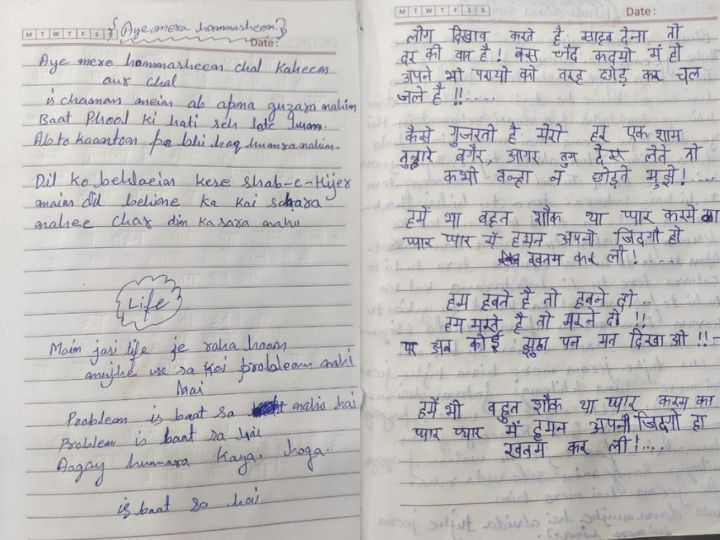 M T W T F S S
{ Aye mera hommasheen }
Date:
Aye mere hommasheen chal kaheen
aur chal
is chaman mein ab apna guzara nahin
Baat Phool ki hati seh lete hum.
Ab to kaanton pa bhi haq humara nahin.
Dil ko behlaein kese shab-e-Hijer
main dil behlne ka kai sahara
nahee char din ka sara nahi
Life
Maim jasi life je raha hoon
mujhe us sa koi probleam nahi
hai
Poablem is baat sa nahi hai
Broblem is baat sa hai
Aagay humara kaya hoga.
is baat so hai
M T W T F S S
Date:
लोग दिखाव करते है साहब देना तो
दूर की बात है! बस चंद कदमो में ही
अपने भी परायो की तरह छोड़ कर चल
जले है !!.....
कैसे गुजरती है मेरी हर एक शाम
तुम्हारे बगैर, आगर तुम देख लेते तो
कभी तन्हा न छोड़ते मुझे!....
हमें भी बहुत शौक था प्यार करने का
प्यार प्यार में हमन अपनी जिंदगी ही
खतम कर ली!
हम डूबते है तो डूबने दो...
हम मरते है तो मरने दो !!
पर अब कोई झूठा पन मत दिखाओ !!-
हमें भी बहुत शौक था प्यार करम का
प्यार प्यार में हमन अपनी जिंदगी हा
खतम कर ली!....